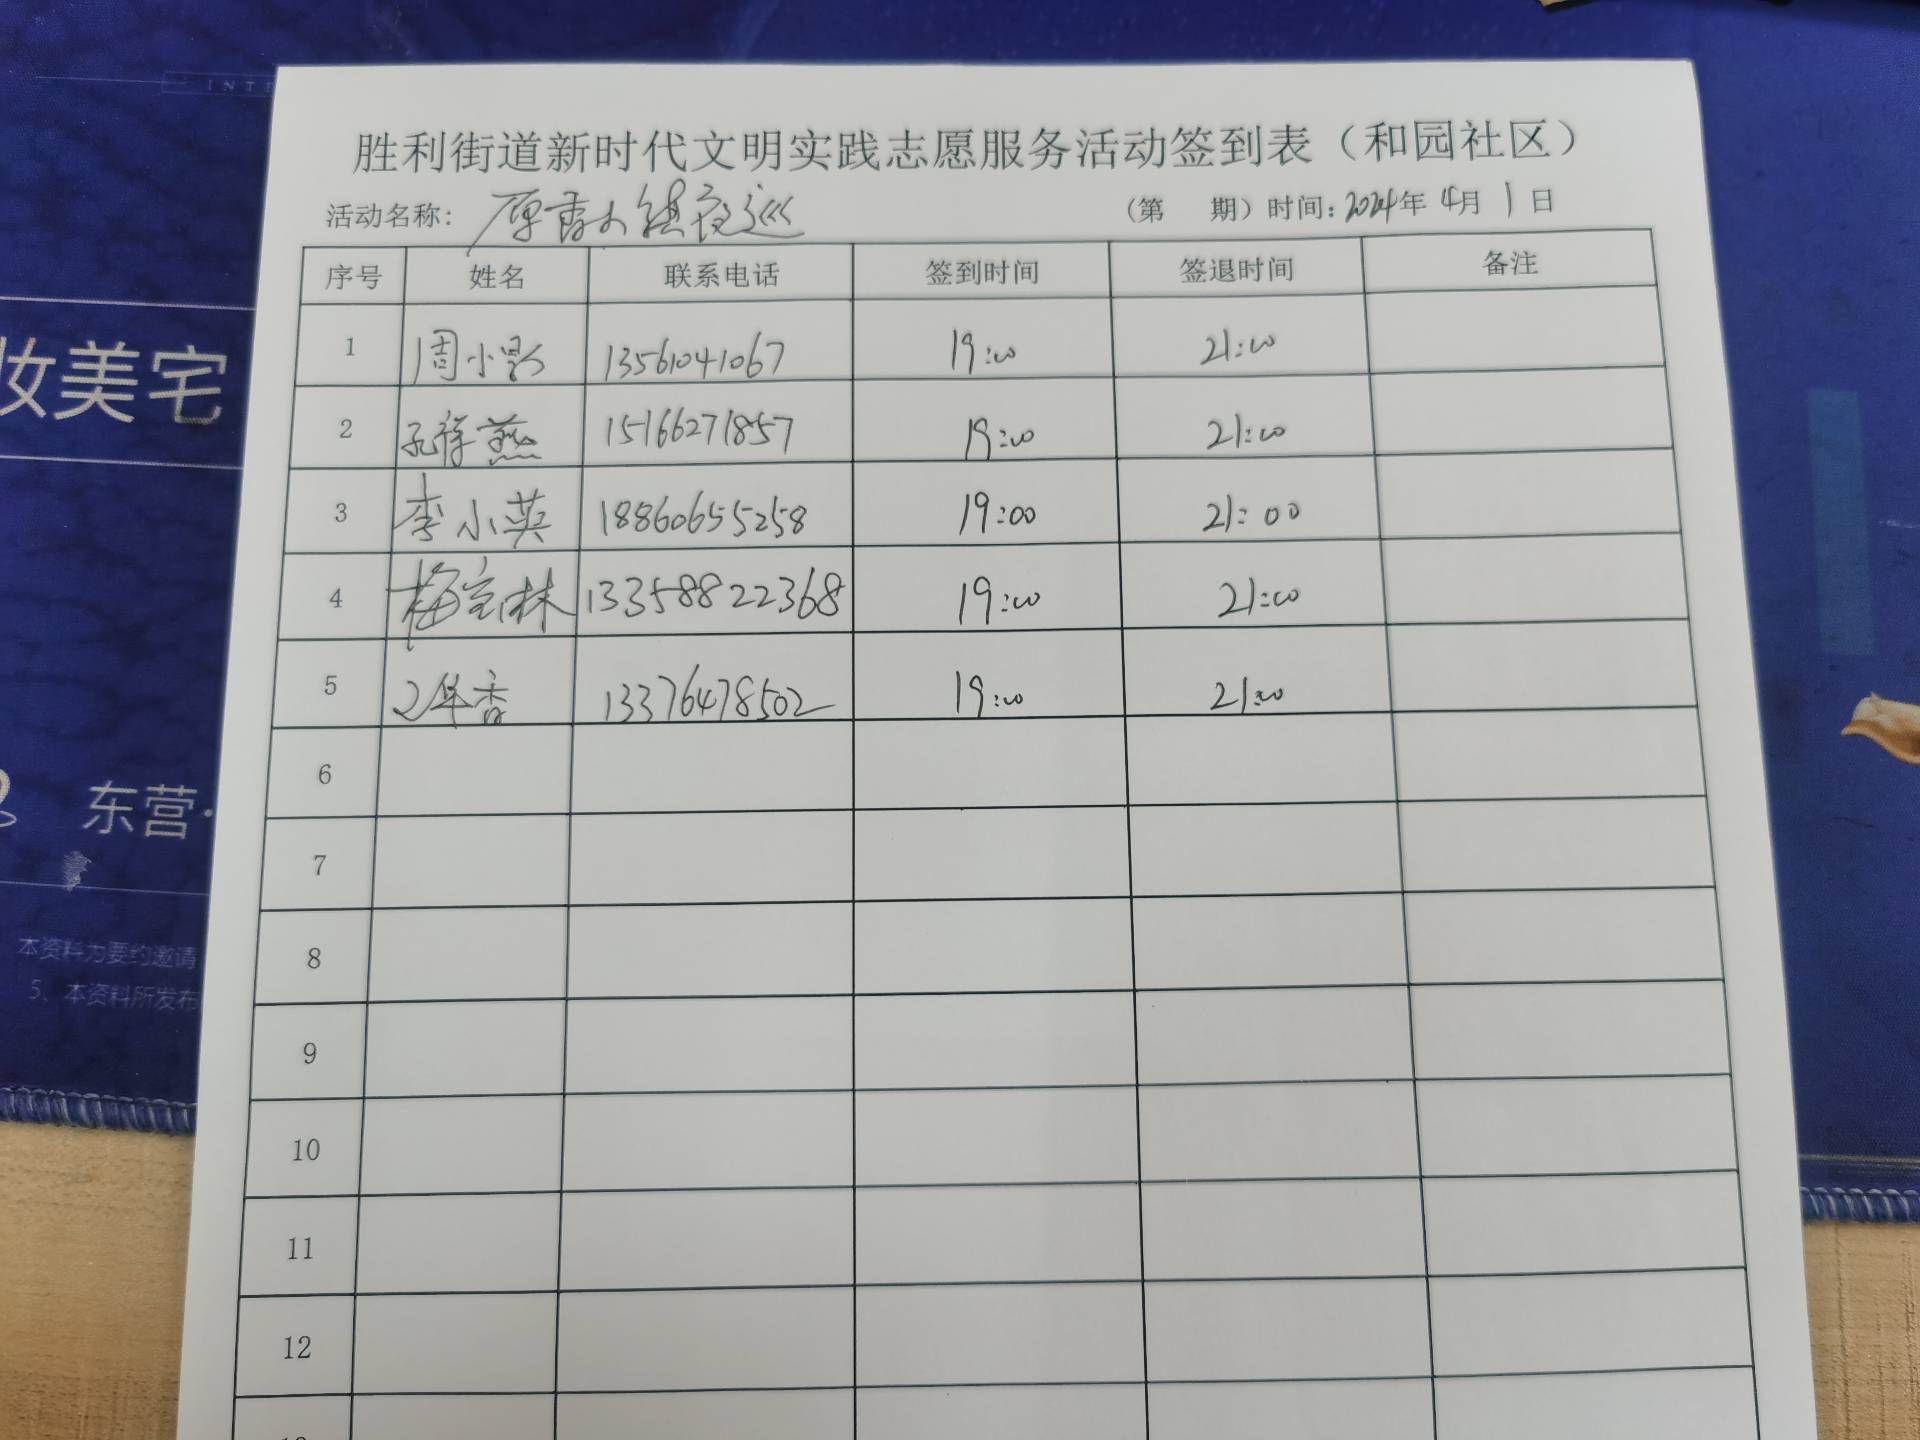 INTE
胜利街道新时代文明实践志愿服务活动签到表（和园社区）
活动名称: 夜巡 （第 期）时间: 2024年 4月 1日
序号 姓名 联系电话 签到时间 签退时间 备注
1 周小 13561041067 19:00 21:00
2 孔祥燕 15166271857 19:00 21:00
3 李小英 18860655258 19:00 21:00
4 梅宝林 13358822368 19:00 21:00
5 香 13376478502 19:00 21:00
6
7
8
9
10
11
12
妆美宅
东营·
本资料为要约邀请
5、本资料所发布